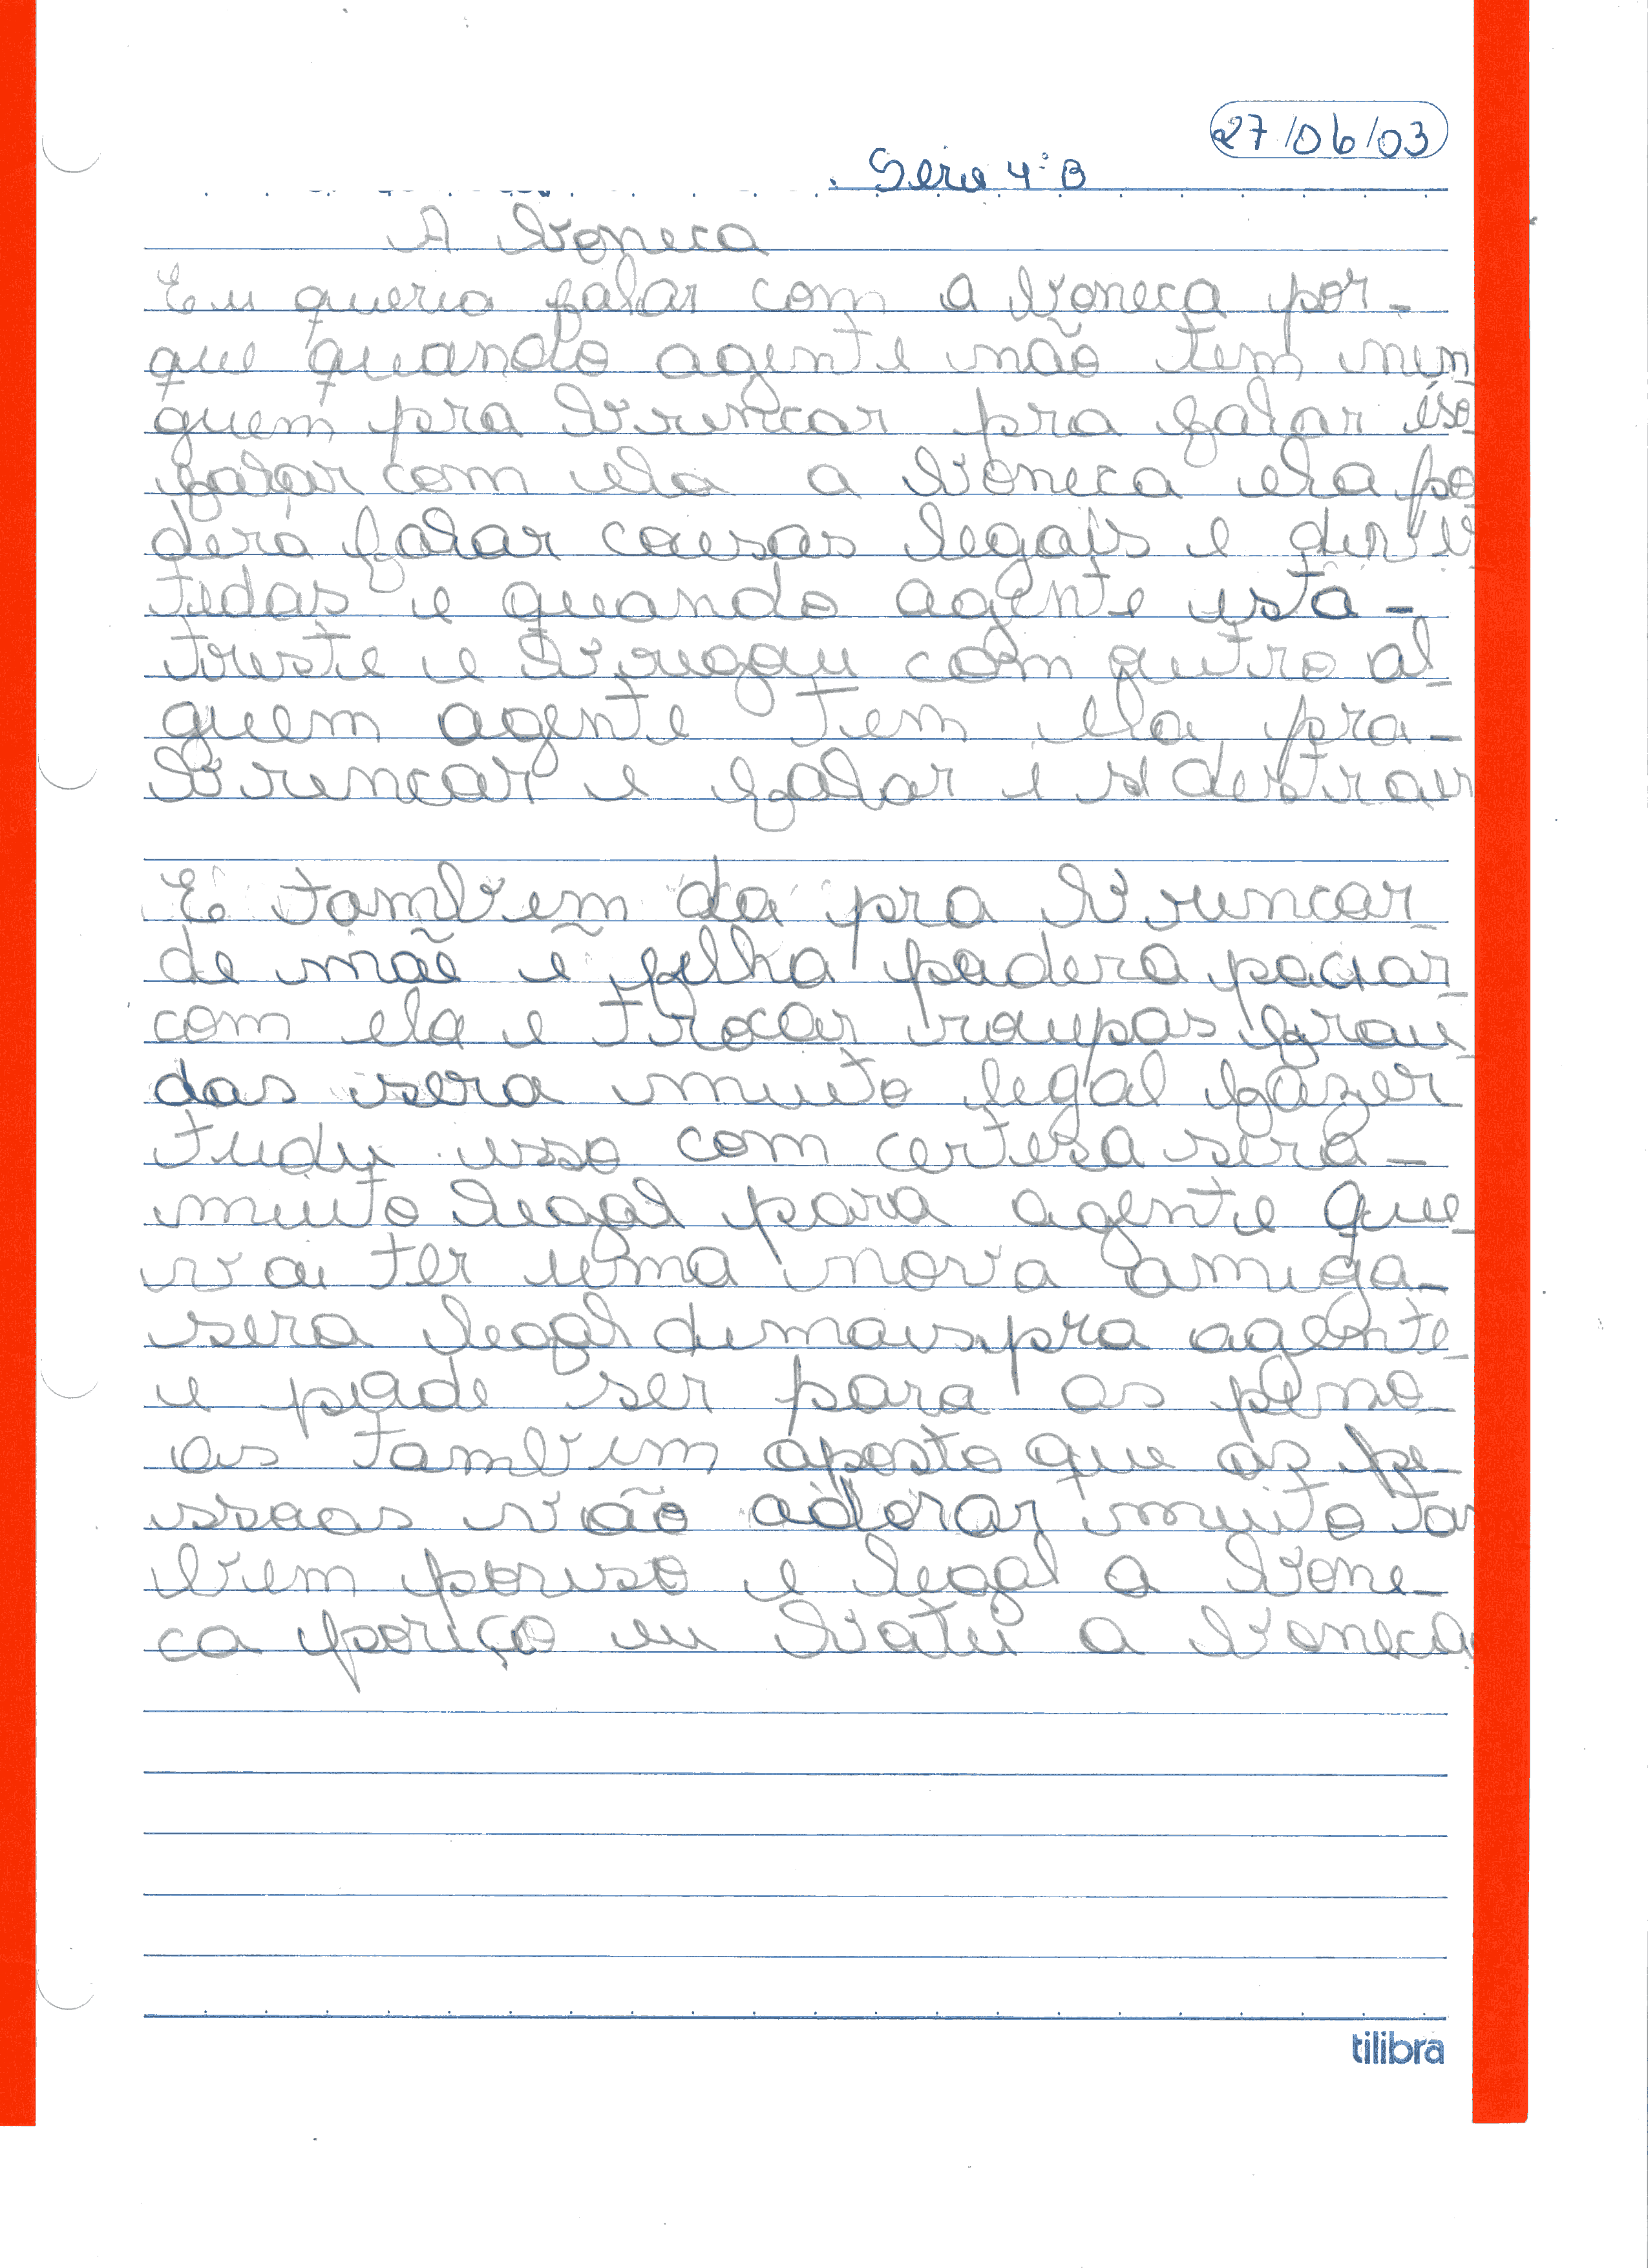 27/06/03
Serie 4ª B
A Boneca
Eu queria falar com a boneca por-
que quando agente não tem nin
guem pra brincar pra falar éso
falar com ela a boneca ela po
dera falar coisas legais e diver
tidas e quando agente esta-
triste e bregou com outro al-
guem agente tem ela pra-
brincar e falar i si destrair
E tambem da pra brincar
de mãe e filha podera paciar
com ela e trocar roupas frau
das sera muito legal fazer
tudu isso com certesa sera-
muito legal para agente que
vai ter uma nova amiga-
sera legal demais pra agente
e pode ser para as peso
as tambem aposto que as pe-
ssoas vão adorar muito tan
bem poriso e legal a bone-
ca poriço eu batu a boneca
tilibra